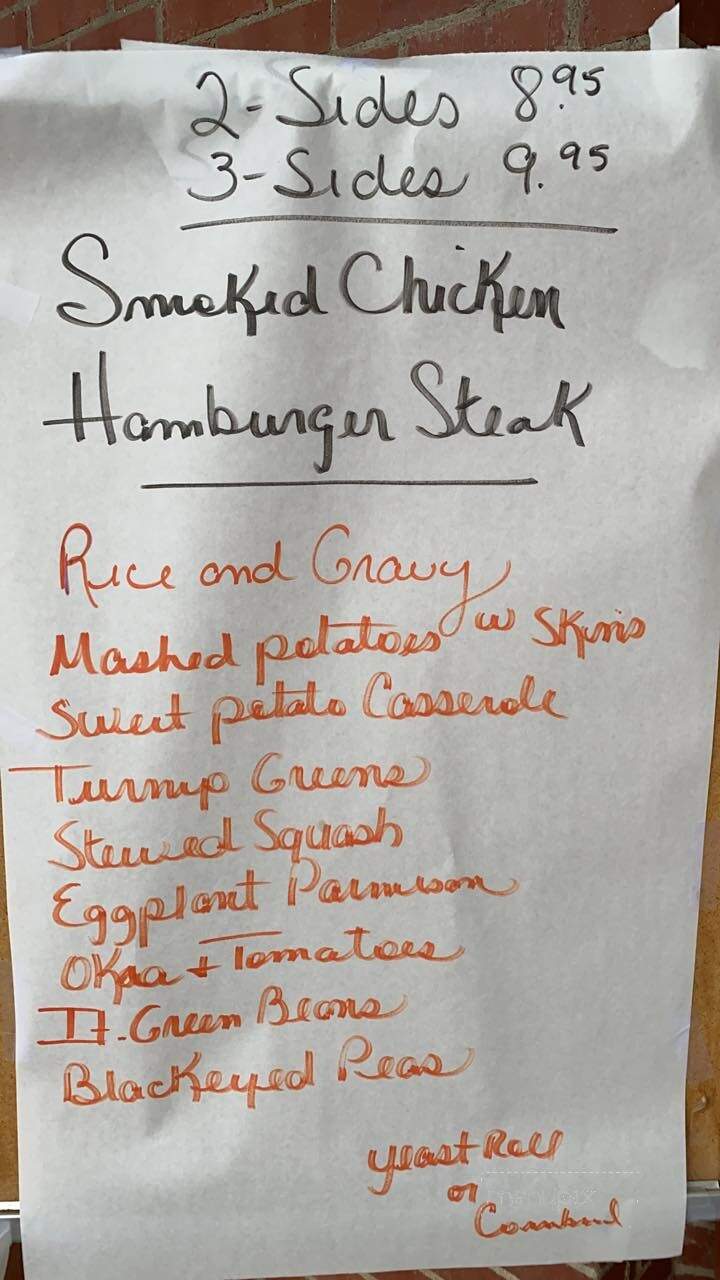 2-Sides 8.95
3-Sides 9.95
Smoked Chicken
Hamburger Steak
Rice and Gravy
Mashed potatoes w Skins
Sweet potato Casserole
Turnip Greens
Stewed Squash
Eggplant Parmesan
Okra + Tomatoes
It. Green Beans
Blackeyed Peas
yeast Roll
or
Cornbread